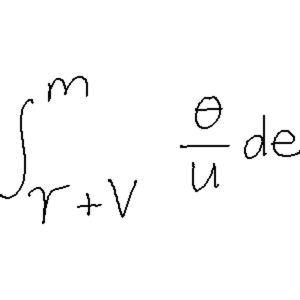 \int_{r+V}^{m} \frac{\theta}{u} de